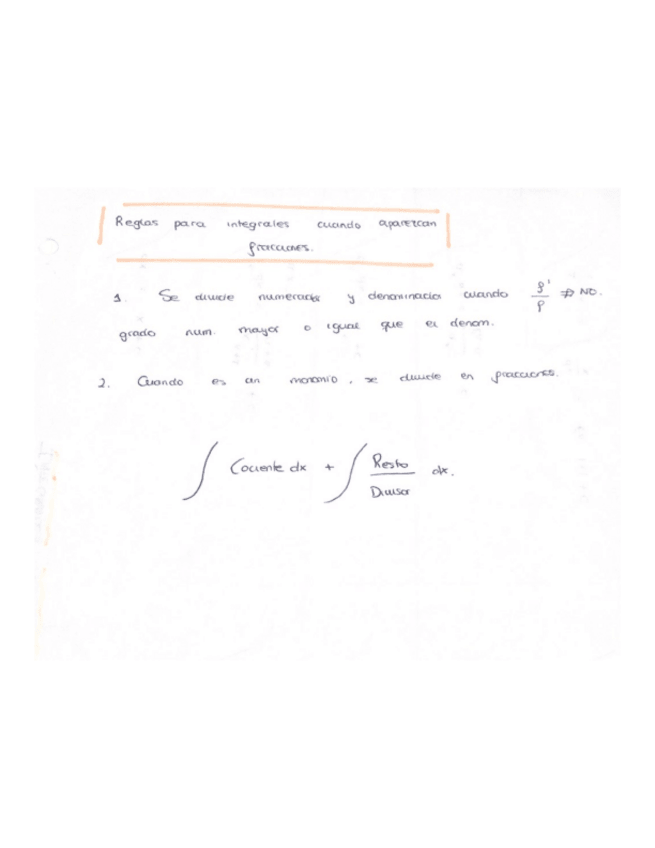 Reglas para integrales cuando aparezcan
fracciones.
1. Se divide numerador y denominador cuando f'/f ⇏ NO.
grado num. mayor o igual que el denom.
2. Cuando es un monomio, se divide en fracciones.
∫ Cociente dx + ∫ Resto/Divisor dx.